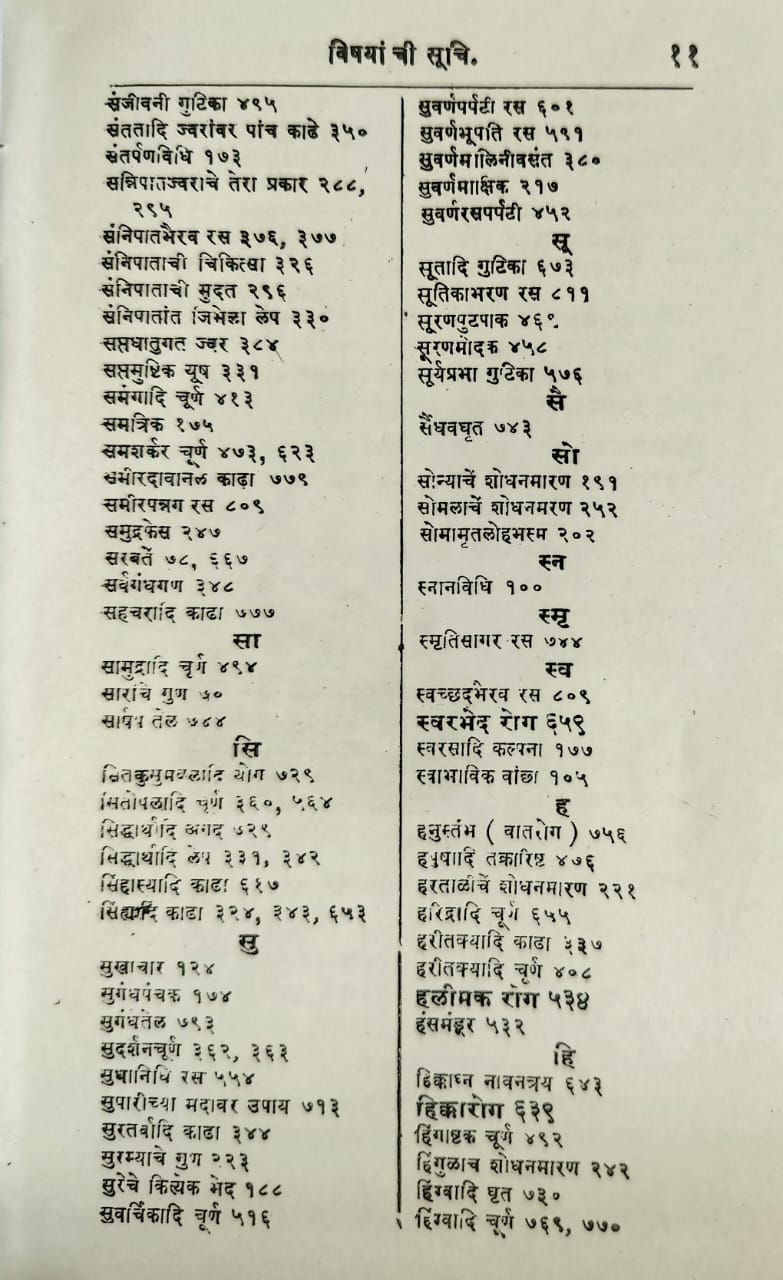 विषयां ची सूचि.
११
संजीवनी गुटिका ४९५
संततादि ज्वरांवर पांच काढे ३५०
संतर्पणविधि १७३
सन्निपातज्वराचे तेरा प्रकार २८८,
२९५
संनिपातभैरव रस ३७६, ३७७
संनिपाताची चिकित्सा ३२६
संनिपाताची मुदत २९६
संनिपातांत जिभेला लेप ३३०
सप्तधातुगत ज्वर ३८४
सप्तमुष्टिक यूष ३३१
समंगादि चूर्ण ४१३
समत्रिक १७५
समशर्कर चूर्ण ४७३, ६२३
समीरदावानल काढा ७७९
समीरपन्नग रस ८०९
समुद्रफेस २४७
सरबतें ७८, ६६७
सर्वगंधगण ३४८
सहचरादि काढा ७७७
सा
सामुद्रादि चूर्ण ४९४
सारांचे गुण ५०
सार्षप तेल ७८४
सि
योग ७२९
सितोपलादि चूर्ण ३६०, ५६४
सिद्धार्थादि अगद ७२९
सिद्धार्थादि लेप ३३१, ३४२
सिंहास्यादि काढा ६१७
सिंह्यादि काढा ३२४, ३४३, ६५३
सु
सुखाचार १२४
सुगंधपंचक १७४
सुगंधतेल ७९३
सुदर्शनचूर्ण ३६२, ३६३
सुधानिधि रस ५५४
सुपारीच्या मदावर उपाय ७१३
सुरतर्वादि काढा ३४४
सुरम्याचे गुण २२३
सुरेचे कित्येक भेद १८८
सुवर्चिकादि चूर्ण ५१६
सुवर्णपर्पटी रस ६०१
सुवर्णभूपति रस ५९१
सुवर्णमालिनीवसंत ३८०
सुवर्णमाक्षिक २१७
सुवर्णरसपर्पटी ४५२
सू
सूतादि गुटिका ६७३
सूतिकाभरण रस ८११
सूरणपुटपाक
सूरणमोदक ४५८
सूर्यप्रभा गुटिका ५७६
सै
सैंधवघृत ७४३
सो
सोन्याचें शोधनमारण १९१
सोमलाचें शोधनमरण २५२
सोमामृतलोहभस्म २०२
स्न
स्नानविधि १००
स्मृ
स्मृतिसागर रस ७४४
स्व
स्वच्छंदभैरव रस ८०९
स्वरभेद रोग ६५९
स्वरसादि कल्पना १७७
स्वाभाविक वांछा १०५
ह
हनुस्तंभ ( वातरोग ) ७५६
हपुषादि तक्रारिष्ट ४७६
हरताळीचें शोधनमारण २२१
हरिद्रादि चूर्ण ६५५
हरीतक्यादि काढा ३३७
हरीतक्यादि चूर्ण ४०८
हलीमक रोग ५३४
हंसमंडूर ५३२
हि
हिक्काघ्न नावनत्रय ६४३
हिक्कारोग ६३९
हिंगाष्टक चूर्ण ४९२
हिंगुळाच शोधनमारण २४२
हिंग्वादि घृत ७३०
हिंग्वादि चूर्ण ७६९, ७७०